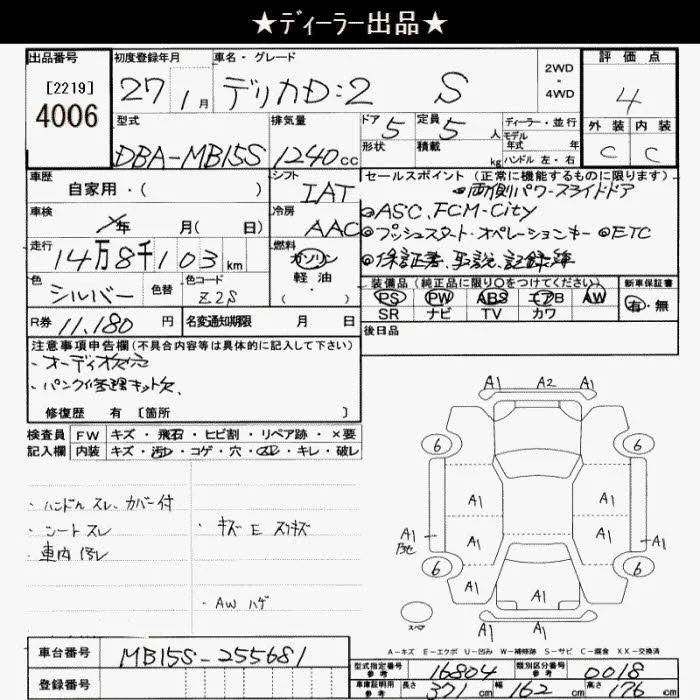 ★ディーラー出品★
出品番号 初度登録年月 車名・グレード 2WD・4WD 評価点
[2219] 4006 27 1月 デリカD:2 S 4
型式 排気量 ドア 5 定員 5 人 ディーラー・並行 外装 内装
DBA-MB15S 1240cc 形状 積載 kg モデル年式 年 ハンドル 左・右 C C
車歴 自家用・( ) シフト IAT セールスポイント (正常に機能するものに限ります)
◎両側パワースライドドア
車検 年 月( 日) 冷房 AAC ◎ASC、FCM-City
◎プッシュスタート・オペレーションキー ◎ETC
走行 14万8千103km 燃料 ガソリン 軽油 ( ・ ) ◎保証書、取説、記録簿
色 シルバー 色替 色コード Z2S 装備品 (純正品に限り○をつけてください) 新車保証書
PS PW ABS エアB AW 有・無
R券 11,180 円 名変通知期限 月 日 SR ナビ TV カワ
後日品
注意事項申告欄(不具合内容等は具体的に記入して下さい)
・オーディオ欠穴
・パンク修理キット欠、
修復歴 有 [箇所 ]
検査員 FW キズ・飛石・ヒビ割・リペア跡・×要
記入欄 内装 キズ・汚レ・コゲ・穴・スレ・キレ・破レ
・ハンドルスレ、カバー付
・シートスレ
・車内汚レ
・キズ E スリキズ
・AWハゲ
A1 A2 A1
6 6
A1 A1
A1 A1 A1 A1
6 6
A1 A1 A1
スペア A1 A1
A-キズ E-エクボ U-凹み W-補修跡 S-サビ C-腐食 XX-交換済
車台番号 MB15S-255681
型式指定番号 参考 16804 類別区分番号 参考 0018
登録番号 車庫証明用 参考 長さ 371 cm 幅 162 cm 高さ 176 cm